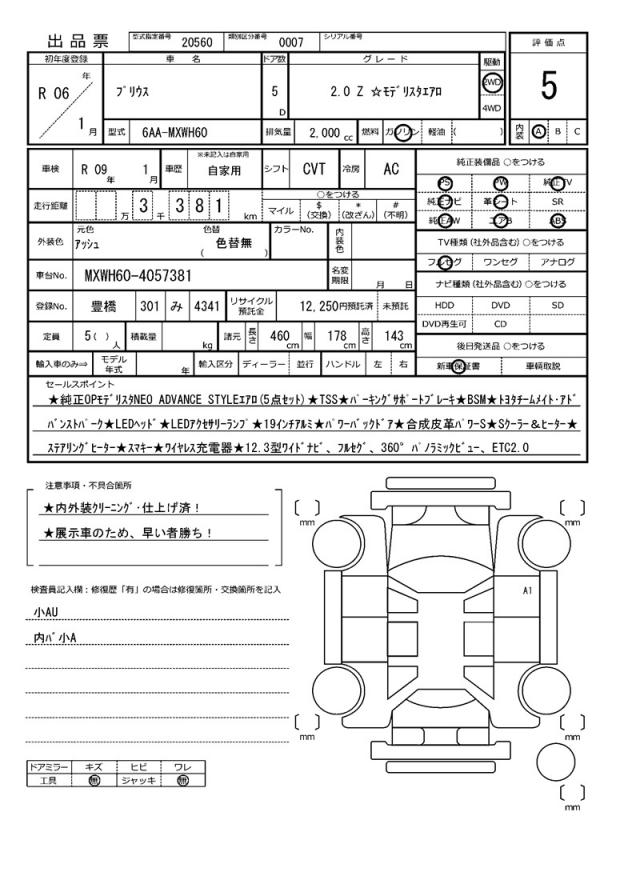 出品票 型式指定番号 20560 類別区分番号 0007 シリアル番号
初年度登録 車名 ドア数 グレード 駆動 評価点
R 06 年 1 月 プリウス 5 D 2.0 Z ☆モデリスタエアロ 2WD 4WD 5
型式 6AA-MXWH60 排気量 2,000 cc 燃料 ガソリン 軽油 ( ) 内装 A B C
車検 R 09 年 1 月 車歴 ※未記入は自家用 自家用 シフト CVT 冷房 AC
純正装備品 ○をつける
PS PW 純正TV
純正ナビ 革シート SR
純正AW エアB ABS
走行距離 万 3 千 3 8 1 km
○をつける
マイル $ (交換) * (改ざん) # (不明)
外装色 元色 アッシュ 色替 ( 色替無 ) カラーNo. 内装色
TV種類 (社外品含む) ○をつける
フルセグ ワンセグ アナログ
車台No. MXWH60-4057381 名変期限 月 日
ナビ種類 (社外品含む) ○をつける
HDD DVD SD
DVD再生可 CD
登録No. 豊橋 301 み 4341 リサイクル預託金 12,250円預託済 未預託
定員 5( ) 人 積載量 kg 諸元 長さ 460 cm 幅 178 cm 高さ 143 cm
後日発送品 ○をつける
新車保証書 車輌取説
輸入車のみ⇒ モデル年式 年 輸入区分 ディーラー 並行 ハンドル 左 右
セールスポイント
★純正OPモデリスタNEO ADVANCE STYLEエアロ(5点セット)★TSS★パーキングサポートブレーキ★BSM★トヨタチームメイト・アド
バンストパーク★LEDヘッド★LEDアクセサリーランプ★19インチアルミ★パワーバックドア★合成皮革パワーS★Sクーラー&ヒーター★
ステアリングヒーター★スマキー★ワイヤレス充電器★12.3型ワイドナビ、フルセグ、360°パノラミックビュー、ETC2.0
注意事項・不具合箇所
★内外装クリーニング・仕上げ済！
★展示車のため、早い者勝ち！
検査員記入欄：修復歴「有」の場合は修復箇所・交換箇所を記入
小AU
内バ小A
mm
mm
A1
mm
mm
mm
ドアミラー キズ ヒビ ワレ
工具 無 ジャッキ 無